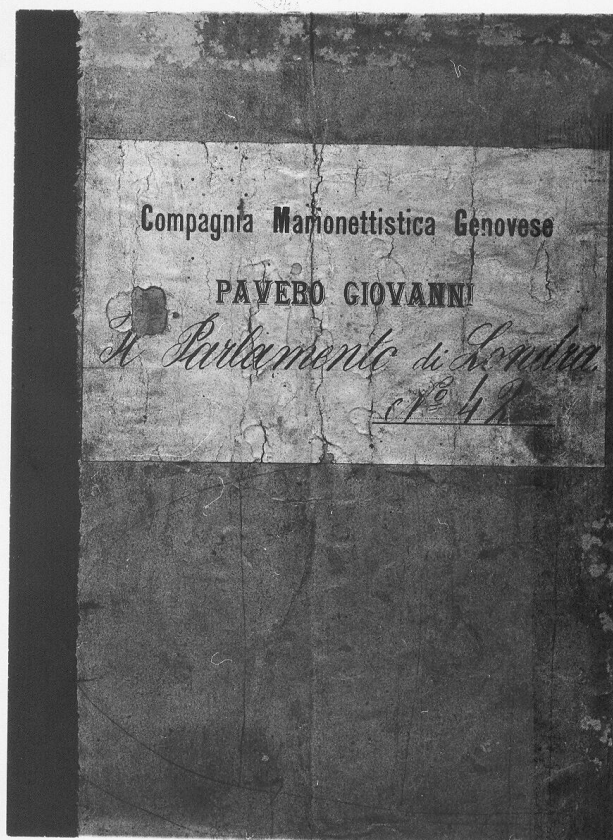 Compagnia Marionettistica Genovese
PAVERO GIOVANNI
Il Parlamento di Londra
Nº 42